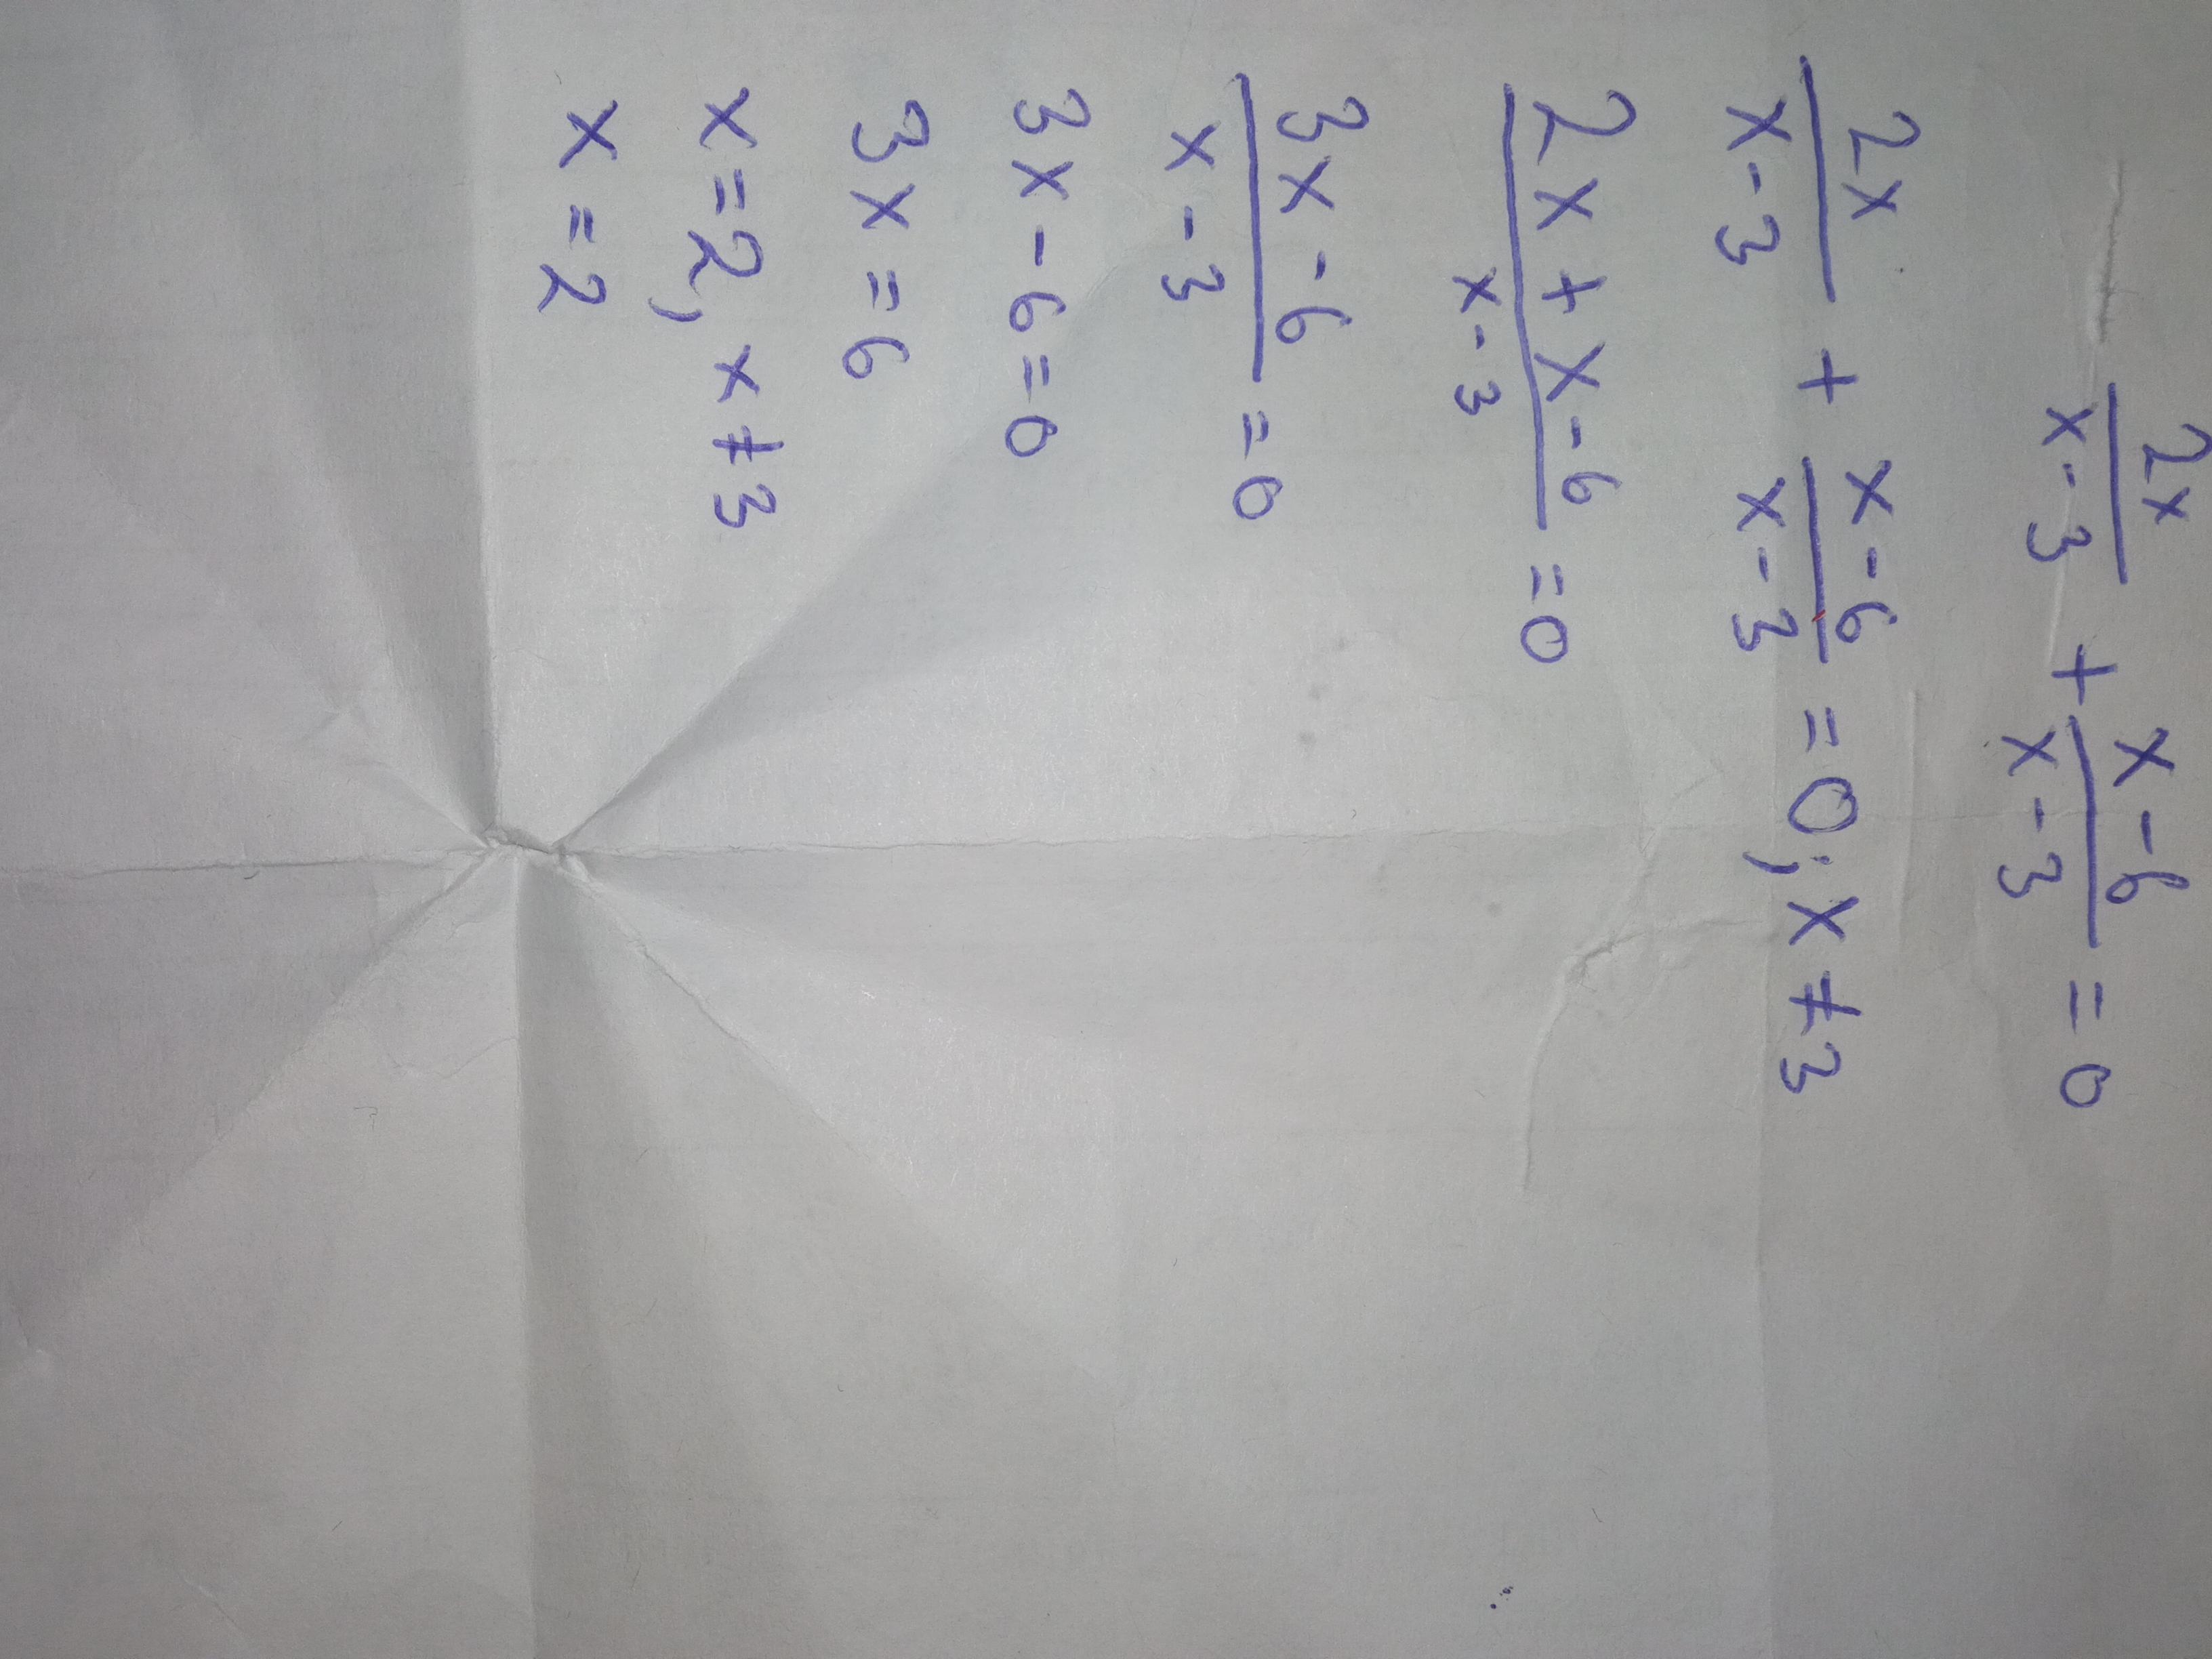 2x/(x-3) + (x-6)/(x-3) = 0
2x/(x-3) + (x-6)/(x-3) = 0; x ≠ 3
(2x + x - 6)/(x-3) = 0
(3x - 6)/(x - 3) = 0
3x - 6 = 0
3x = 6
x = 2, x ≠ 3
x = 2